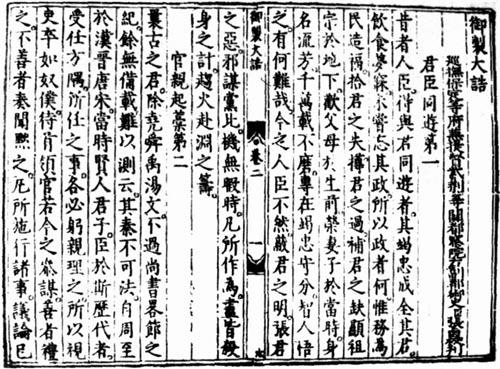 御製大誥
巡撫保定等府兼提督
君臣同遊第一
昔者人臣得與君同遊者其竭忠成全其君
飲食夢寐未嘗忘其政所以政者何惟務為
民造福拾君之失搏君之過補君之缺顯祖
宗於地下歡父母於生前榮妻子於當時身
名流芳千萬載不磨專在竭忠守分智人悟
之有何難哉今之人臣不然蔽君之明張君
御製大誥 卷二 一
之惡邪謀黨比機無暇時凡所作為盡皆殺
身之計趨火赴淵之籌
官親起藁第二
曩古之君除堯舜禹湯文不過尚書畧飾之
紀餘無備載難以測云其秦不可法自周至
於漢晉唐宋當時賢人君子臣於斯歷代者
受任方隅所任之事各必躬親理之所以視
吏卒如奴僕待首領官若今之參謀善者禮
之不善者奏聞黜之凡所施行諸事議論已